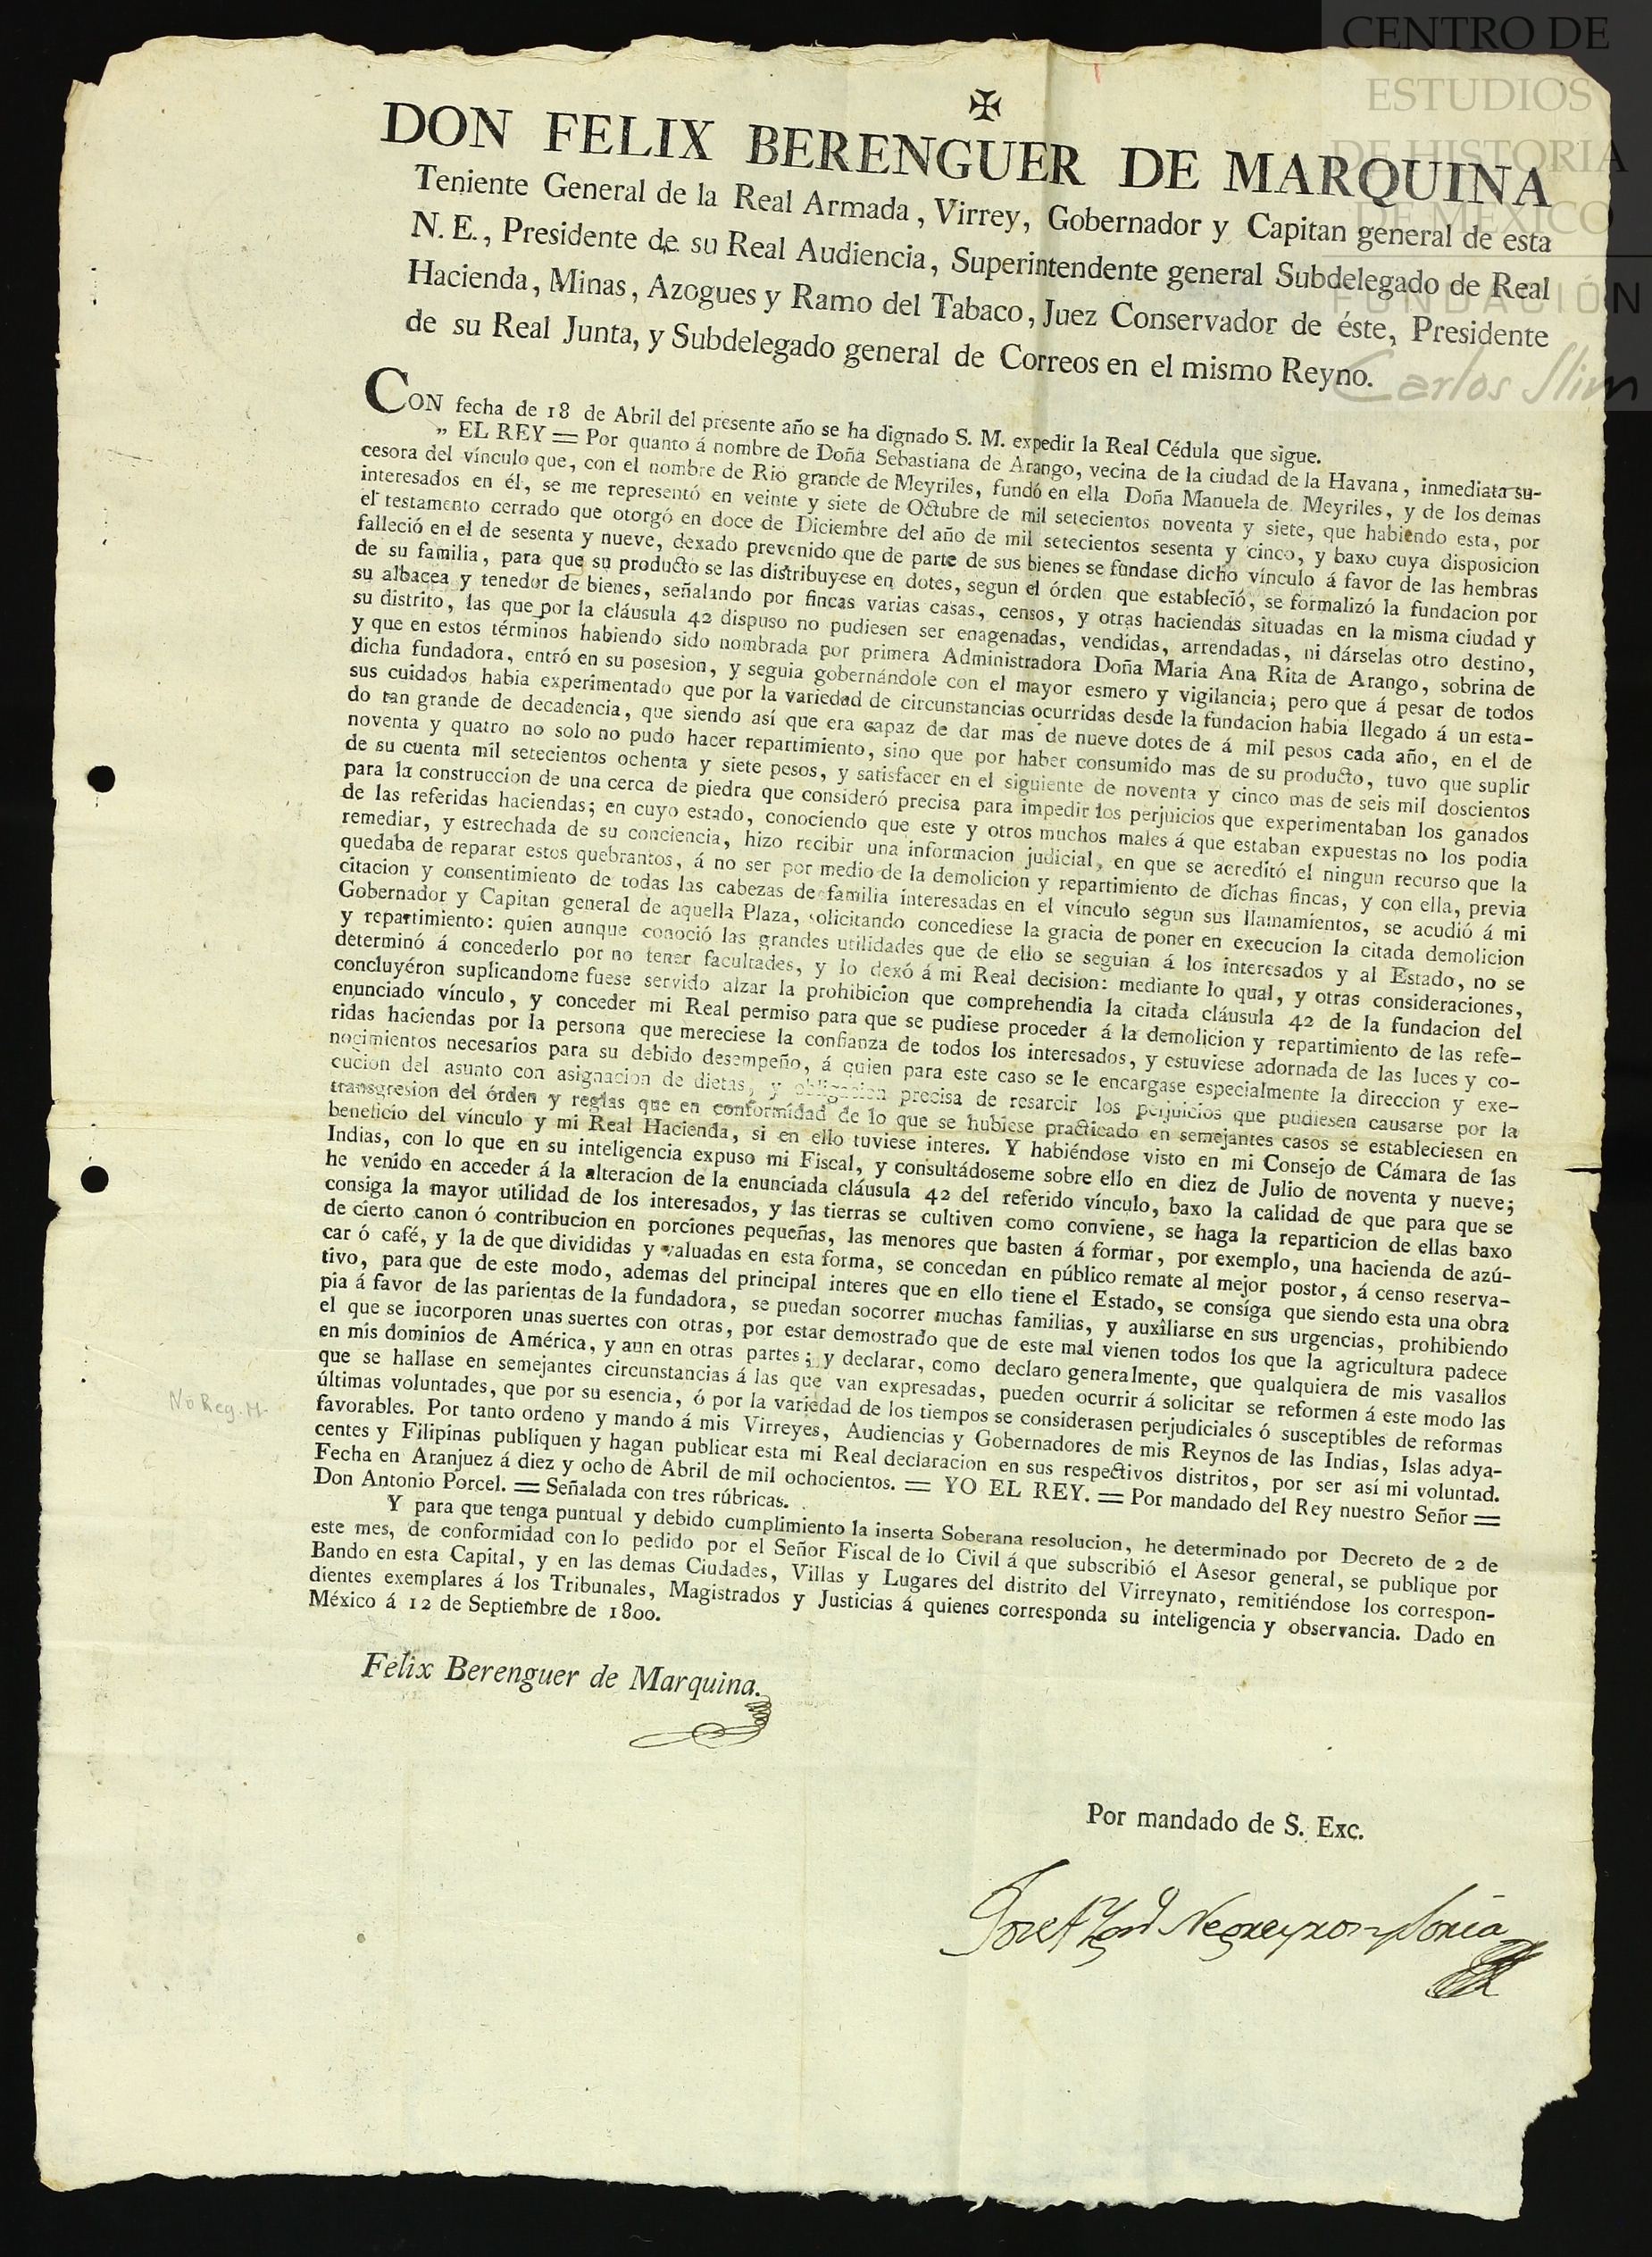 CENTRO DE
ESTUDIOS
DE HISTORIA
DE MÉXICO
FUNDACIÓN
Carlos Slim
✠
DON FELIX BERENGUER DE MARQUINA
Teniente General de la Real Armada, Virrey, Gobernador y Capitan general de esta
N. E., Presidente de su Real Audiencia, Superintendente general Subdelegado de Real
Hacienda, Minas, Azogues y Ramo del Tabaco, Juez Conservador de éste, Presidente
de su Real Junta, y Subdelegado general de Correos en el mismo Reyno.
CON fecha de 18 de Abril del presente año se ha dignado S. M. expedir la Real Cédula que sigue.
„ EL REY = Por quanto á nombre de Doña Sebastiana de Arango, vecina de la ciudad de la Havana, inmediata su-
cesora del vínculo que, con el nombre de Rio grande de Meyriles, fundó en ella Doña Manuela de Meyriles, y de los demas
interesados en él, se me representó en veinte y siete de Octubre de mil setecientos noventa y siete, que habiendo esta, por
el testamento cerrado que otorgó en doce de Diciembre del año de mil setecientos sesenta y cinco, y baxo cuya disposicion
falleció en el de sesenta y nueve, dexado prevenido que de parte de sus bienes se fundase dicho vínculo á favor de las hembras
de su familia, para que su producto se las distribuyese en dotes, segun el órden que estableció, se formalizó la fundacion por
su albacea y tenedor de bienes, señalando por fincas varias casas, censos, y otras haciendas situadas en la misma ciudad y
su distrito, las que por la cláusula 42 dispuso no pudiesen ser enagenadas, vendidas, arrendadas, ni dárselas otro destino,
y que en estos términos habiendo sido nombrada por primera Administradora Doña Maria Ana Rita de Arango, sobrina de
dicha fundadora, entró en su posesion, y seguia gobernándole con el mayor esmero y vigilancia; pero que á pesar de todos
sus cuidados habia experimentado que por la variedad de circunstancias ocurridas desde la fundacion habia llegado á un esta-
do tan grande de decadencia, que siendo así que era capaz de dar mas de nueve dotes de á mil pesos cada año, en el de
noventa y quatro no solo no pudo hacer repartimiento, sino que por haber consumido mas de su producto, tuvo que suplir
de su cuenta mil setecientos ochenta y siete pesos, y satisfacer en el siguiente de noventa y cinco mas de seis mil doscientos
para la construccion de una cerca de piedra que consideró precisa para impedir los perjuicios que experimentaban los ganados
de las referidas haciendas; en cuyo estado, conociendo que este y otros muchos males á que estaban expuestas no los podia
remediar, y estrechada de su conciencia, hizo recibir una informacion judicial, en que se acreditó el ningun recurso que la
quedaba de reparar estos quebrantos, á no ser por medio de la demolicion y repartimiento de dichas fincas, y con ella, previa
citacion y consentimiento de todas las cabezas de familia interesadas en el vínculo segun sus llamamientos, se acudió á mi
Gobernador y Capitan general de aquella Plaza, solicitando concediese la gracia de poner en execucion la citada demolicion
y repartimiento: quien aunque conoció las grandes utilidades que de ello se seguian á los interesados y al Estado, no se
determinó á concederlo por no tener facultades, y lo dexó á mi Real decision: mediante lo qual, y otras consideraciones,
concluyéron suplicandome fuese servido alzar la prohibicion que comprehendia la citada cláusula 42 de la fundacion del
enunciado vínculo, y conceder mi Real permiso para que se pudiese proceder á la demolicion y repartimiento de las refe-
ridas haciendas por la persona que mereciese la confianza de todos los interesados, y estuviese adornada de las luces y co-
nocimientos necesarios para su debido desempeño, á quien para este caso se le encargase especialmente la direccion y exe-
cucion del asunto con asignacion de dietas, y obligacion precisa de resarcir los perjuicios que pudiesen causarse por la
transgresion del órden y reglas que en conformidad de lo que se hubiese practicado en semejantes casos se estableciesen en
beneficio del vínculo y mi Real Hacienda, si en ello tuviese interes. Y habiéndose visto en mi Consejo de Cámara de las
Indias, con lo que en su inteligencia expuso mi Fiscal, y consultádoseme sobre ello en diez de Julio de noventa y nueve;
he venido en acceder á la alteracion de la enunciada cláusula 42 del referido vínculo, baxo la calidad de que para que se
consiga la mayor utilidad de los interesados, y las tierras se cultiven como conviene, se haga la reparticion de ellas baxo
de cierto canon ó contribucion en porciones pequeñas, las menores que basten á formar, por exemplo, una hacienda de azú-
car ó café, y la de que divididas y valuadas en esta forma, se concedan en público remate al mejor postor, á censo reserva-
tivo, para que de este modo, ademas del principal interes que en ello tiene el Estado, se consiga que siendo esta una obra
pia á favor de las parientas de la fundadora, se puedan socorrer muchas familias, y auxîliarse en sus urgencias, prohibiendo
el que se incorporen unas suertes con otras, por estar demostrado que de este mal vienen todos los que la agricultura padece
en mis dominios de América, y aun en otras partes; y declarar, como declaro generalmente, que qualquiera de mis vasallos
que se hallase en semejantes circunstancias á las que van expresadas, pueden ocurrir á solicitar se reformen á este modo las
últimas voluntades, que por su esencia, ó por la variedad de los tiempos se considerasen perjudiciales ó susceptibles de reformas
favorables. Por tanto ordeno y mando á mis Virreyes, Audiencias y Gobernadores de mis Reynos de las Indias, Islas adya-
centes y Filipinas publiquen y hagan publicar esta mi Real declaracion en sus respectivos distritos, por ser así mi voluntad.
Fecha en Aranjuez á diez y ocho de Abril de mil ochocientos. = YO EL REY. = Por mandado del Rey nuestro Señor =
Don Antonio Porcel. = Señalada con tres rúbricas.
Y para que tenga puntual y debido cumplimiento la inserta Soberana resolucion, he determinado por Decreto de 2 de
este mes, de conformidad con lo pedido por el Señor Fiscal de lo Civil á que subscribió el Asesor general, se publique por
Bando en esta Capital, y en las demas Ciudades, Villas y Lugares del distrito del Virreynato, remitiéndose los correspon-
dientes exemplares á los Tribunales, Magistrados y Justicias á quienes corresponda su inteligencia y observancia. Dado en
México á 12 de Septiembre de 1800.
No Reg. M.
Félix Berenguer de Marquina.
Por mandado de S. Exc.
Negreyros y Soria